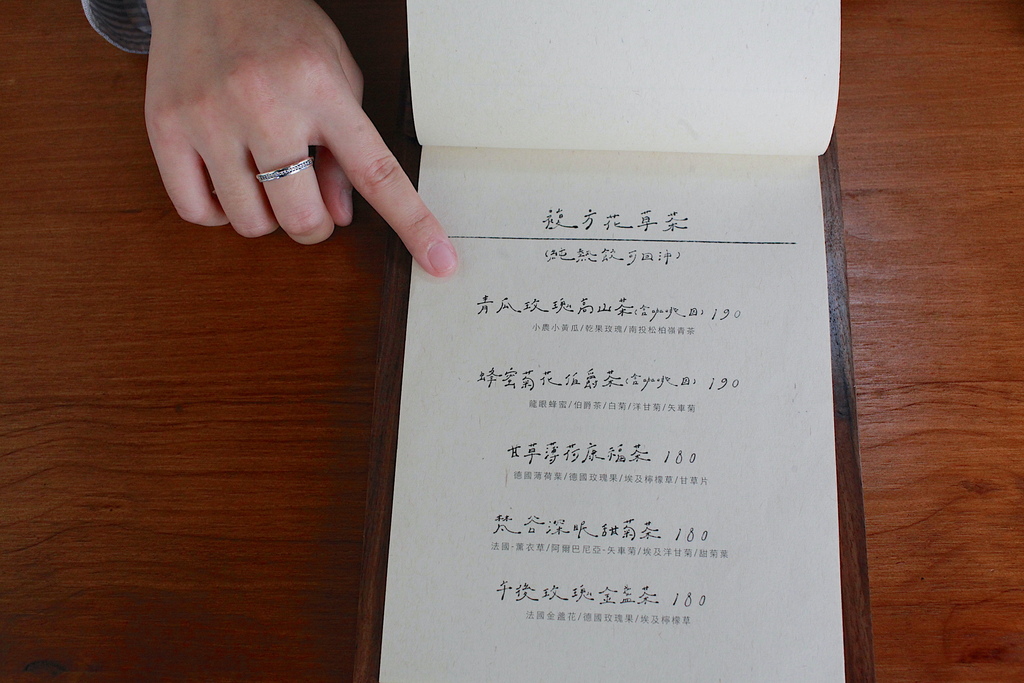 複方花草茶
(純熱飲可回沖)
青瓜玫瑰高山茶(含咖啡因) 190
小農小黃瓜/乾果玫瑰/南投松柏嶺青茶
蜂蜜菊花伯爵茶(含咖啡因) 190
龍眼蜂蜜/伯爵茶/白菊/洋甘菊/矢車菊
甘草薄荷康福茶 180
德國薄荷葉/德國玫瑰果/埃及檸檬草/甘草片
梵谷深眠甜菊茶 180
法國-薰衣草/阿爾巴尼亞-矢車菊/埃及洋甘菊/甜菊葉
午後玫瑰金盞茶 180
法國金盞花/德國玫瑰果/埃及檸檬草